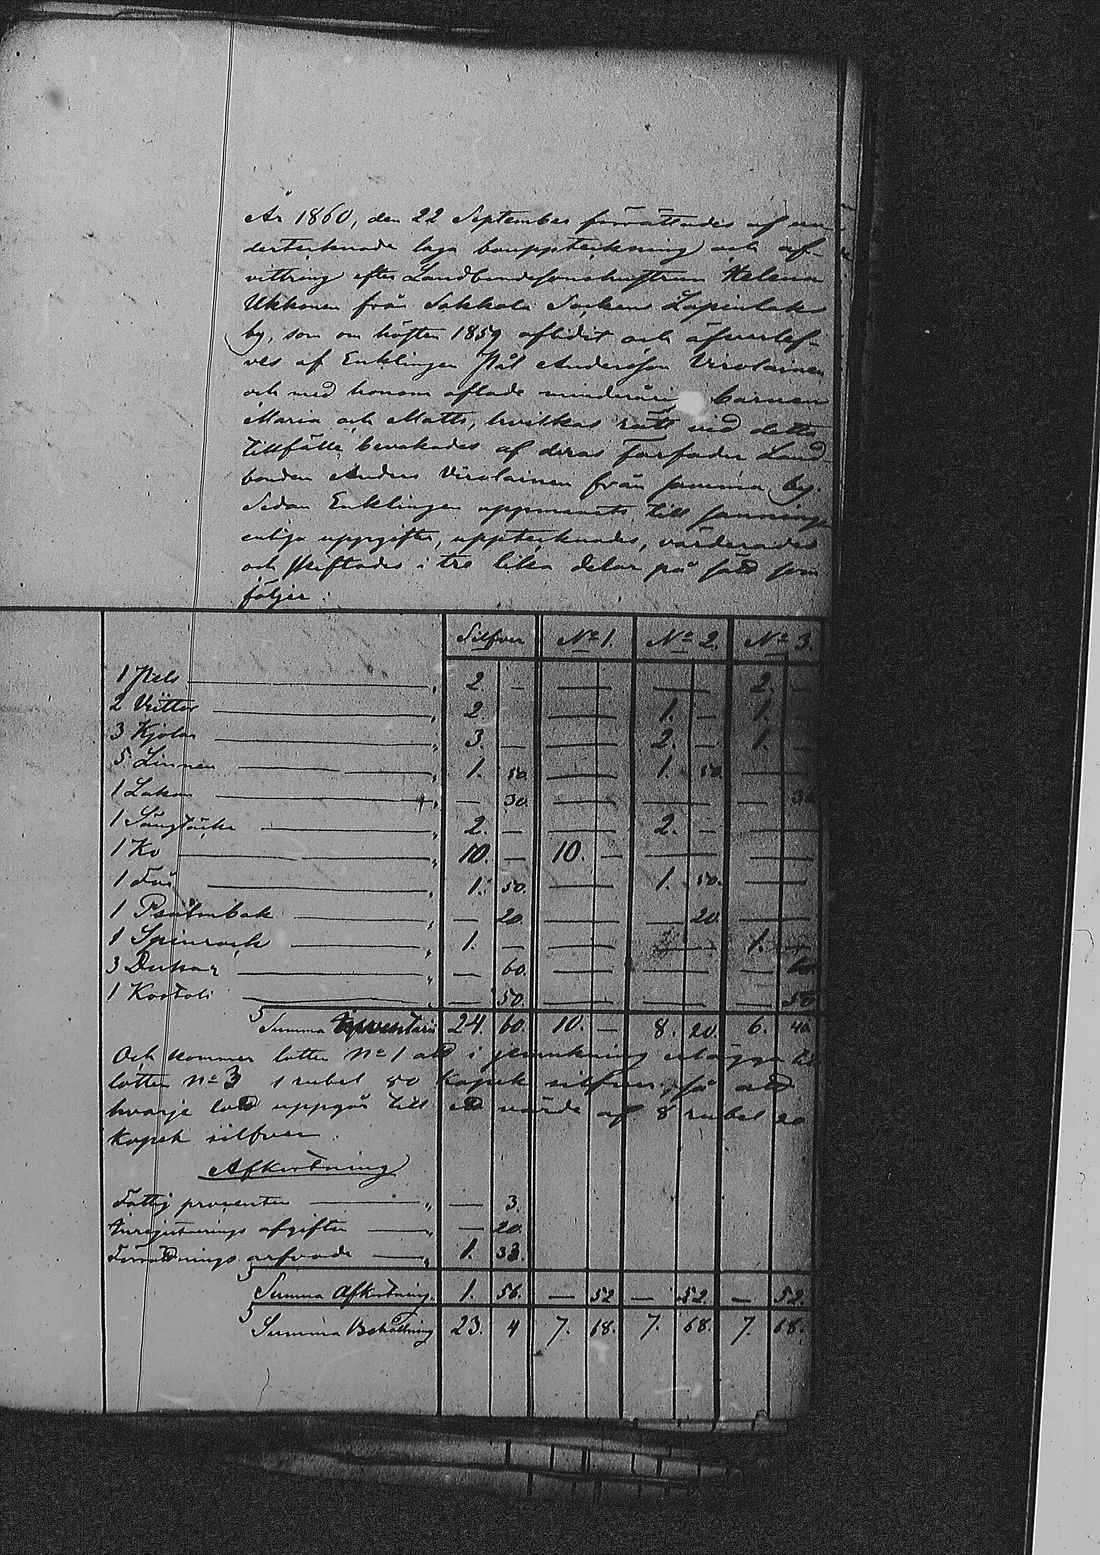 År 1860, den 22 September förrättades af un-
dertecknade laga bouppteckning och af-
vittring efter Landbondesonshustrun Helena
Ukkonen från Sakkola Sockens Lapinlaks
by, som om hösten 1859 aflidit och öfverlef-
ves af Enklingen Pål Andersson Virolainen
och med honom aflade minderårig barnen
Maria och Matts, hvilkas rätt vid detta
tillfälle bevakades af deras Farfader Land-
bonden Anders Virolainen från samma by.
Sedan Enklingen uppmanats till sannings
enliga uppgifter, upptecknades, värderades
och skiftades i tre lika delar på sätt som
följer:
Silfver No 1. No 2. No 3.
1 Pels " 2. — — — 2. —
2 " 2. — — 1. — 1. —
3 Kjolar " 3. — — 2. — 1. —
5 Linnen " 1. 50. — 1. 50. —
1 Lakan " — 30. — — — 30
1 Sängtäcke " 2. — — 2. — —
1 Ko " 10. — 10. — — —
1 Får " 1. 50. — 1. 50. —
1 Psalmbok " — 20. — — 20. —
1 Spinrock " 1. — — — 1. —
3 Dukar " — 60. — — — 60.
1 " — 50. — — — 50
Summa Inventarii 24. 60. 10. — 8. 20. 6. 40.
Och kommer lotten No 1 att i jemnkning erlägga till
lotten No 3 1 rubel 80 Kopek silfver, så att
hvarje lott uppgår till ett värde af 8 rubel 20
Kopek silfver.
Afkortning
Fattig procenten " — 3.
Inregistrerings afgiften " — 20.
Förrättnings arfvode " 1. 33.
Summa Afkortning. 1. 56. — 52 — 52. — 52.
Summa Behållning 23. 4 7. 68. 7. 68. 7. 68.